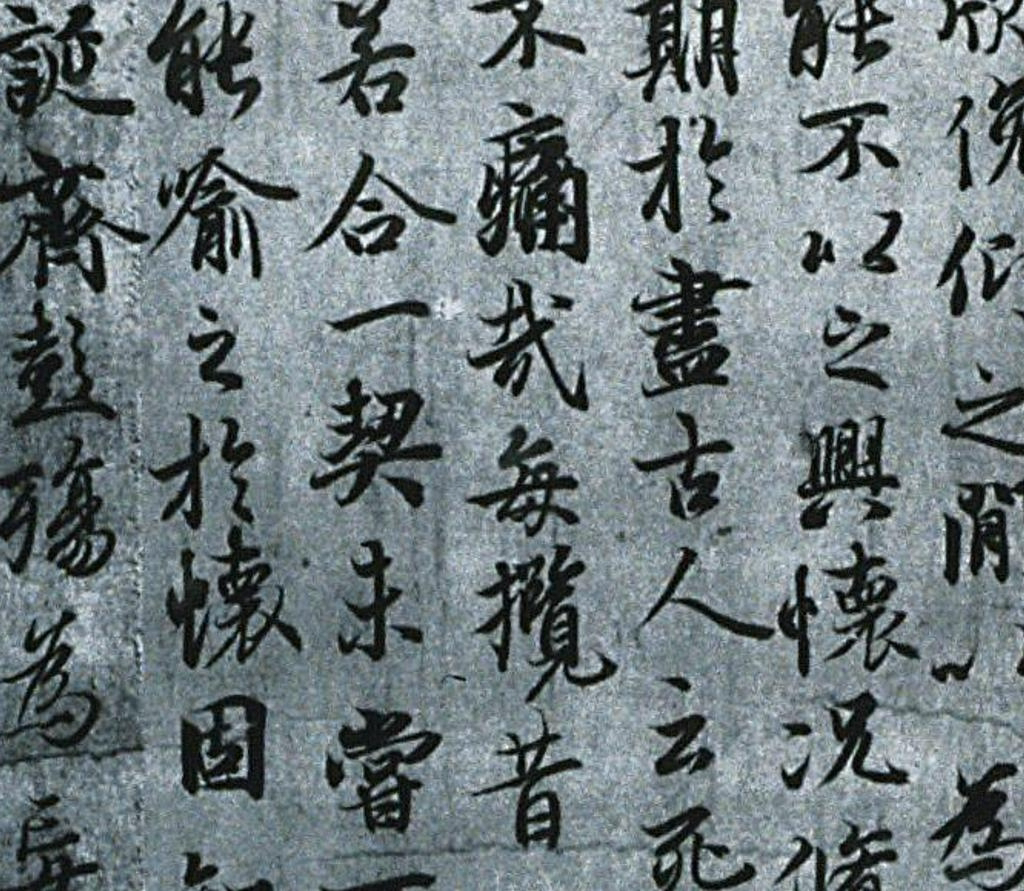 欣俛仰之閒以為
能不以之興懷況脩
期於盡古人云死
不痛哉每攬昔
若合一契未嘗不
能喻之於懷固知
誕齊彭殤為妄